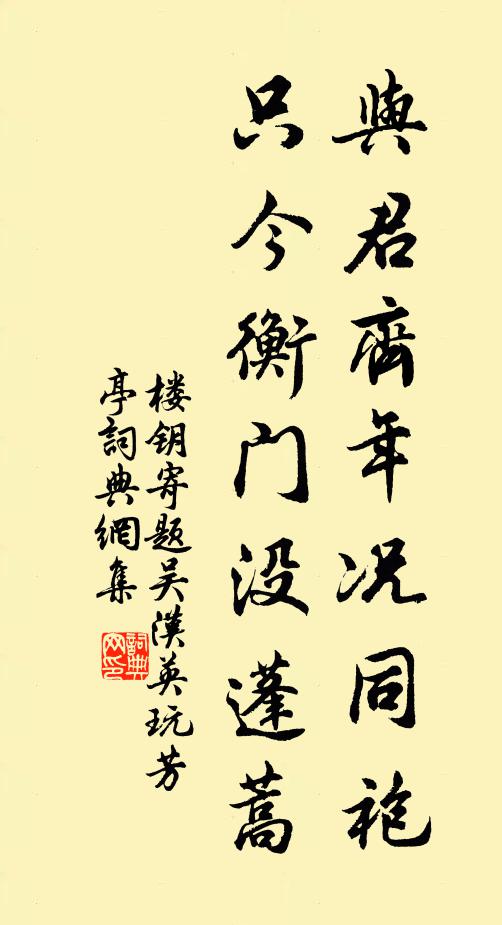 與君齊年况同袍
只今衡门没蓬蒿
楼钥寄题吴漢英玩芳
亭詞典網集
詞典
网印